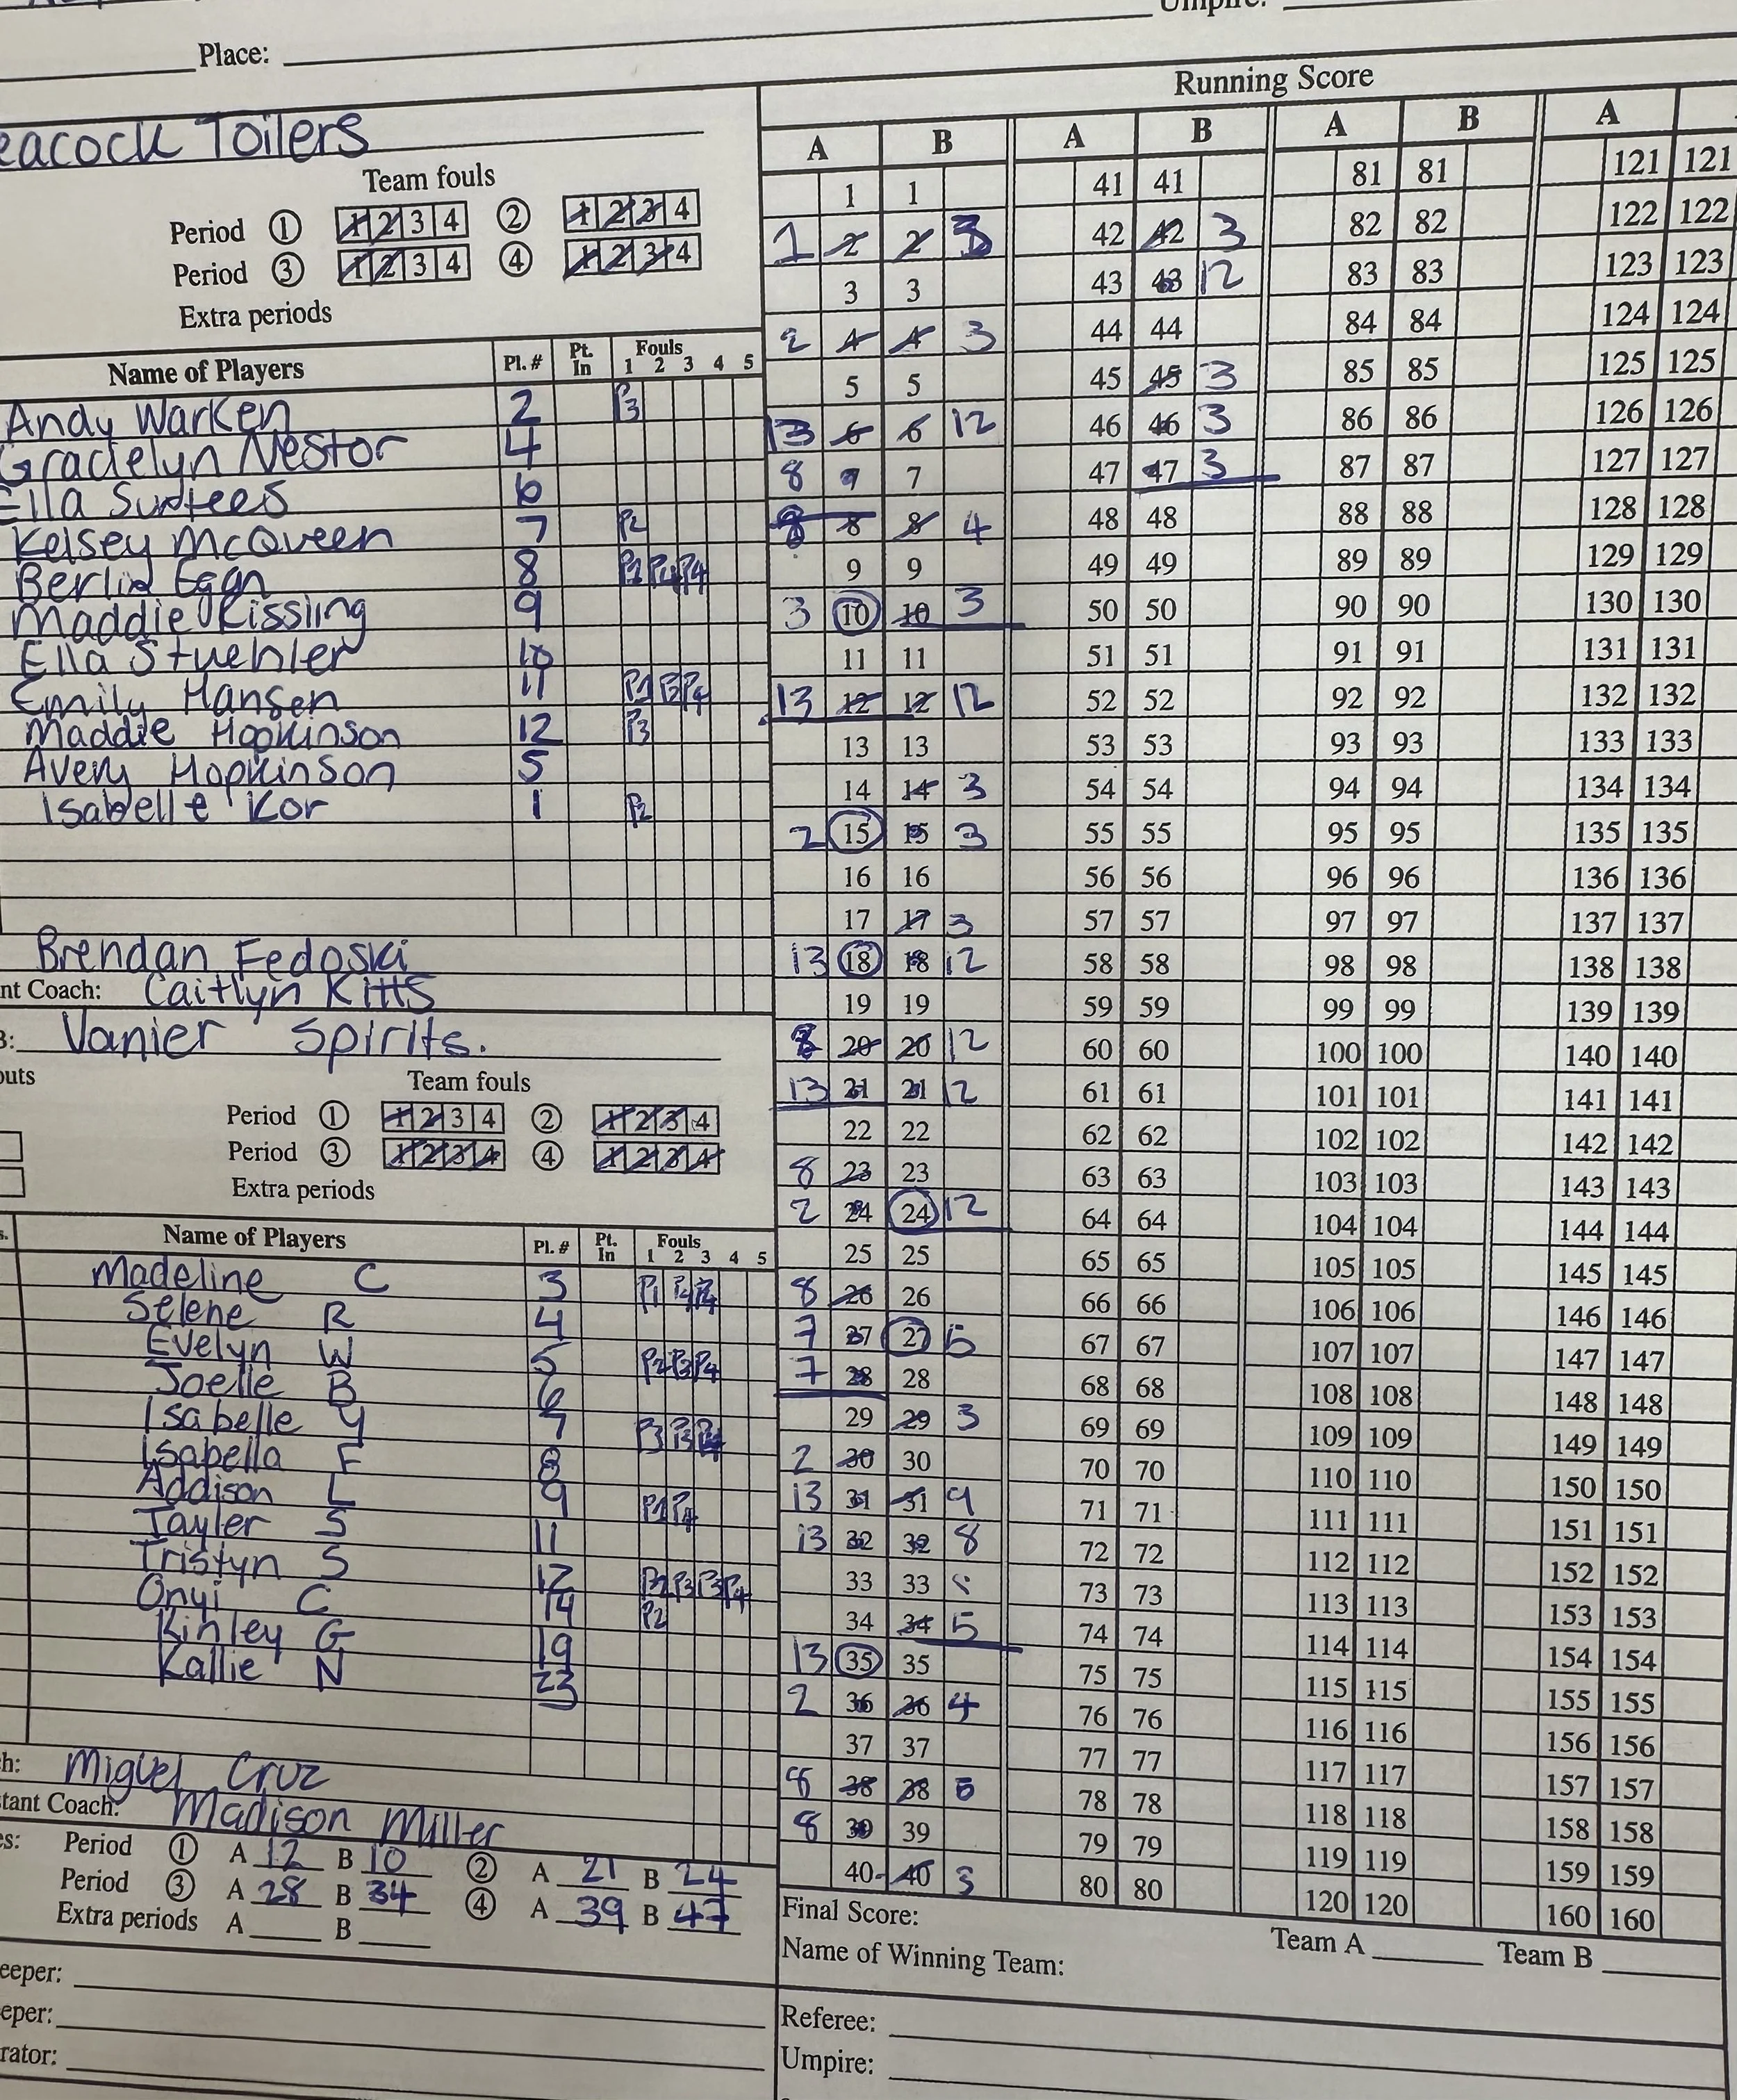 Place:
Running Score
eacock Toilers
Team fouls
Period ① 1 2 3 4 ② 1 2 3 4
Period ③ 1 2 3 4 ④ 1 2 3 4
Extra periods
Name of Players Pl. # Pt. In Fouls 1 2 3 4 5
Andy Warken 2 P3
Gracielyn Nestor 4
Ella Surtees 6
Kelsey McQueen 7 P2
Berlin Eggn 8 P1 P4 P4
Maddie Kissling 9
Ella Stuehler 10
Emily Hansen 11 P1 P3 P4
Maddie Hopkinson 12 P3
Avery Hopkinson 5
Isabelle Kor 1 P2
Brendan Fedoski
nt Coach: Caitlyn Kitts
B: Vanier Spirits.
outs
Team fouls
Period ① 1 2 3 4 ② 1 2 3 4
Period ③ 1 2 3 4 ④ 1 2 3 4
Extra periods
Name of Players Pl. # Pt. In Fouls 1 2 3 4 5
Madeline C 3
Selene R 4
Evelyn W 5 P2 P3 P4
Joelle B 6
Isabelle Y 7
Isabella F 8
Addison L 9 P1 P4
Tayler S 11
Tristyn S 12 P2 P3 P3 P4
Onyi C 14 P2
Kinley G 19
Kallie N 23
ch: Miguel Cruz
stant Coach: Madison Miller
es: Period ① A 12 B 10 ② A 21 B 24
Period ③ A 28 B 34 ④ A 39 B 47
Extra periods A B
eeper:
eper:
rator:
A B A B A B A
1 1 41 41 81 81 121 121
1 2 2 3 42 42 3 82 82 122 122
3 3 43 43 12 83 83 123 123
2 4 4 3 44 44 84 84 124 124
5 5 45 45 3 85 85 125 125
13 6 6 12 46 46 3 86 86 126 126
8 7 7 47 47 3 87 87 127 127
8 8 8 4 48 48 88 88 128 128
9 9 49 49 89 89 129 129
3 10 10 3 50 50 90 90 130 130
11 11 51 51 91 91 131 131
13 12 12 12 52 52 92 92 132 132
13 13 53 53 93 93 133 133
14 14 3 54 54 94 94 134 134
2 15 15 3 55 55 95 95 135 135
16 16 56 56 96 96 136 136
17 17 3 57 57 97 97 137 137
13 18 18 12 58 58 98 98 138 138
19 19 59 59 99 99 139 139
8 20 20 12 60 60 100 100 140 140
13 21 21 12 61 61 101 101 141 141
22 22 62 62 102 102 142 142
8 23 23 63 63 103 103 143 143
2 24 24 12 64 64 104 104 144 144
25 25 65 65 105 105 145 145
8 26 26 66 66 106 106 146 146
7 27 27 5 67 67 107 107 147 147
7 28 28 68 68 108 108 148 148
29 29 3 69 69 109 109 149 149
2 30 30 70 70 110 110 150 150
13 31 31 9 71 71 111 111 151 151
13 32 32 8 72 72 112 112 152 152
33 33 73 73 113 113 153 153
34 34 5 74 74 114 114 154 154
13 35 35 75 75 115 115 155 155
2 36 36 4 76 76 116 116 156 156
37 37 77 77 117 117 157 157
8 38 38 5 78 78 118 118 158 158
8 39 39 79 79 119 119 159 159
40 40 3 80 80 120 120 160 160
Final Score: Team A Team B
Name of Winning Team:
Referee:
Umpire: